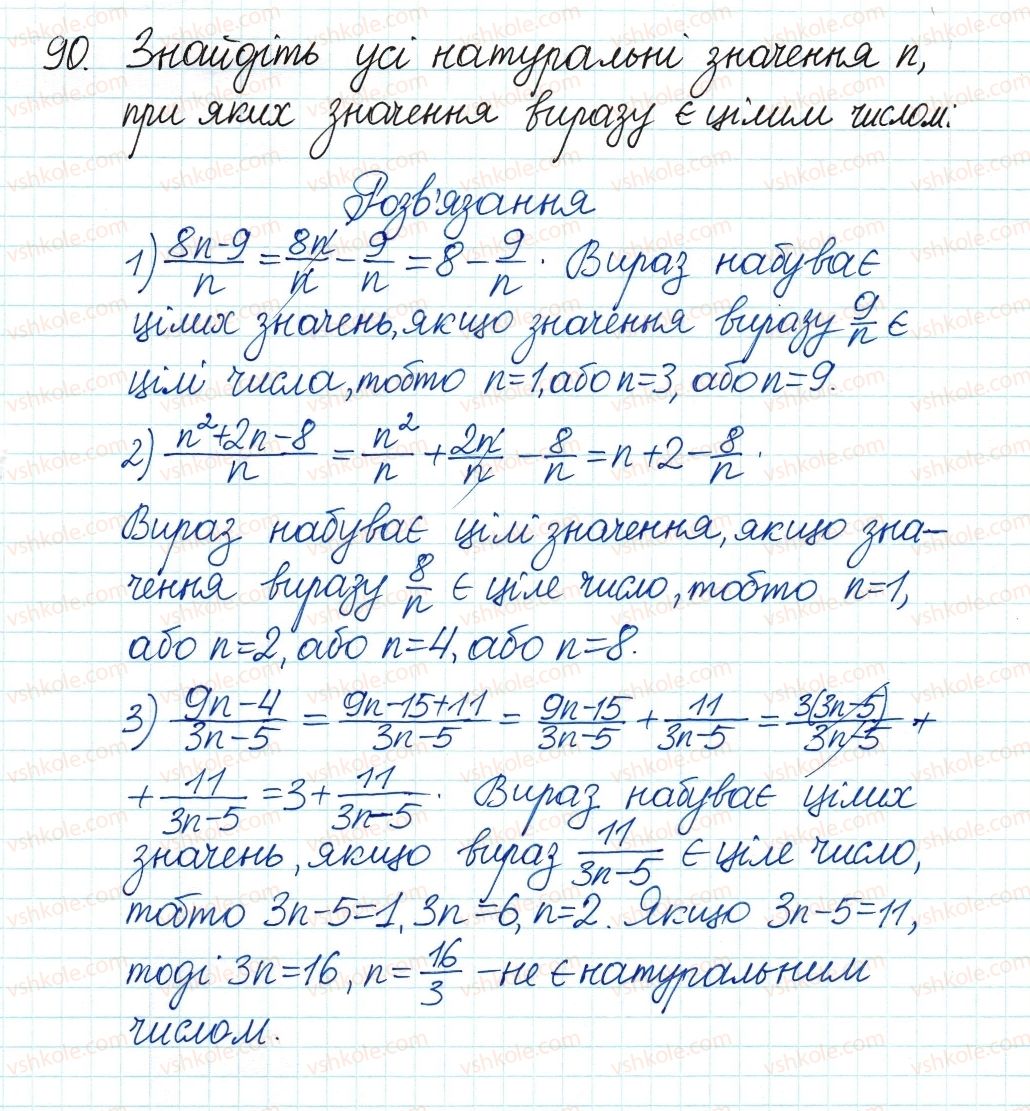 90. Знайдіть усі натуральні значення n,
при яких значення виразу є цілим числом:
Розв'язання
1) (8n-9)/n = 8n/n - 9/n = 8 - 9/n. Вираз набуває
цілих значень, якщо значення виразу 9/n є
цілі числа, тобто n=1, або n=3, або n=9.
2) (n²+2n-8)/n = n²/n + 2n/n - 8/n = n+2 - 8/n.
Вираз набуває цілі значення, якщо зна-
чення виразу 8/n є ціле число, тобто n=1,
або n=2, або n=4, або n=8.
3) (9n-4)/(3n-5) = (9n-15+11)/(3n-5) = (9n-15)/(3n-5) + 11/(3n-5) = 3(3n-5)/(3n-5) +
+ 11/(3n-5) = 3 + 11/(3n-5). Вираз набуває цілих
значень, якщо вираз 11/(3n-5) є ціле число,
тобто 3n-5=1, 3n=6, n=2. Якщо 3n-5=11,
тоді 3n=16, n=16/3 -не є натуральним
числом.